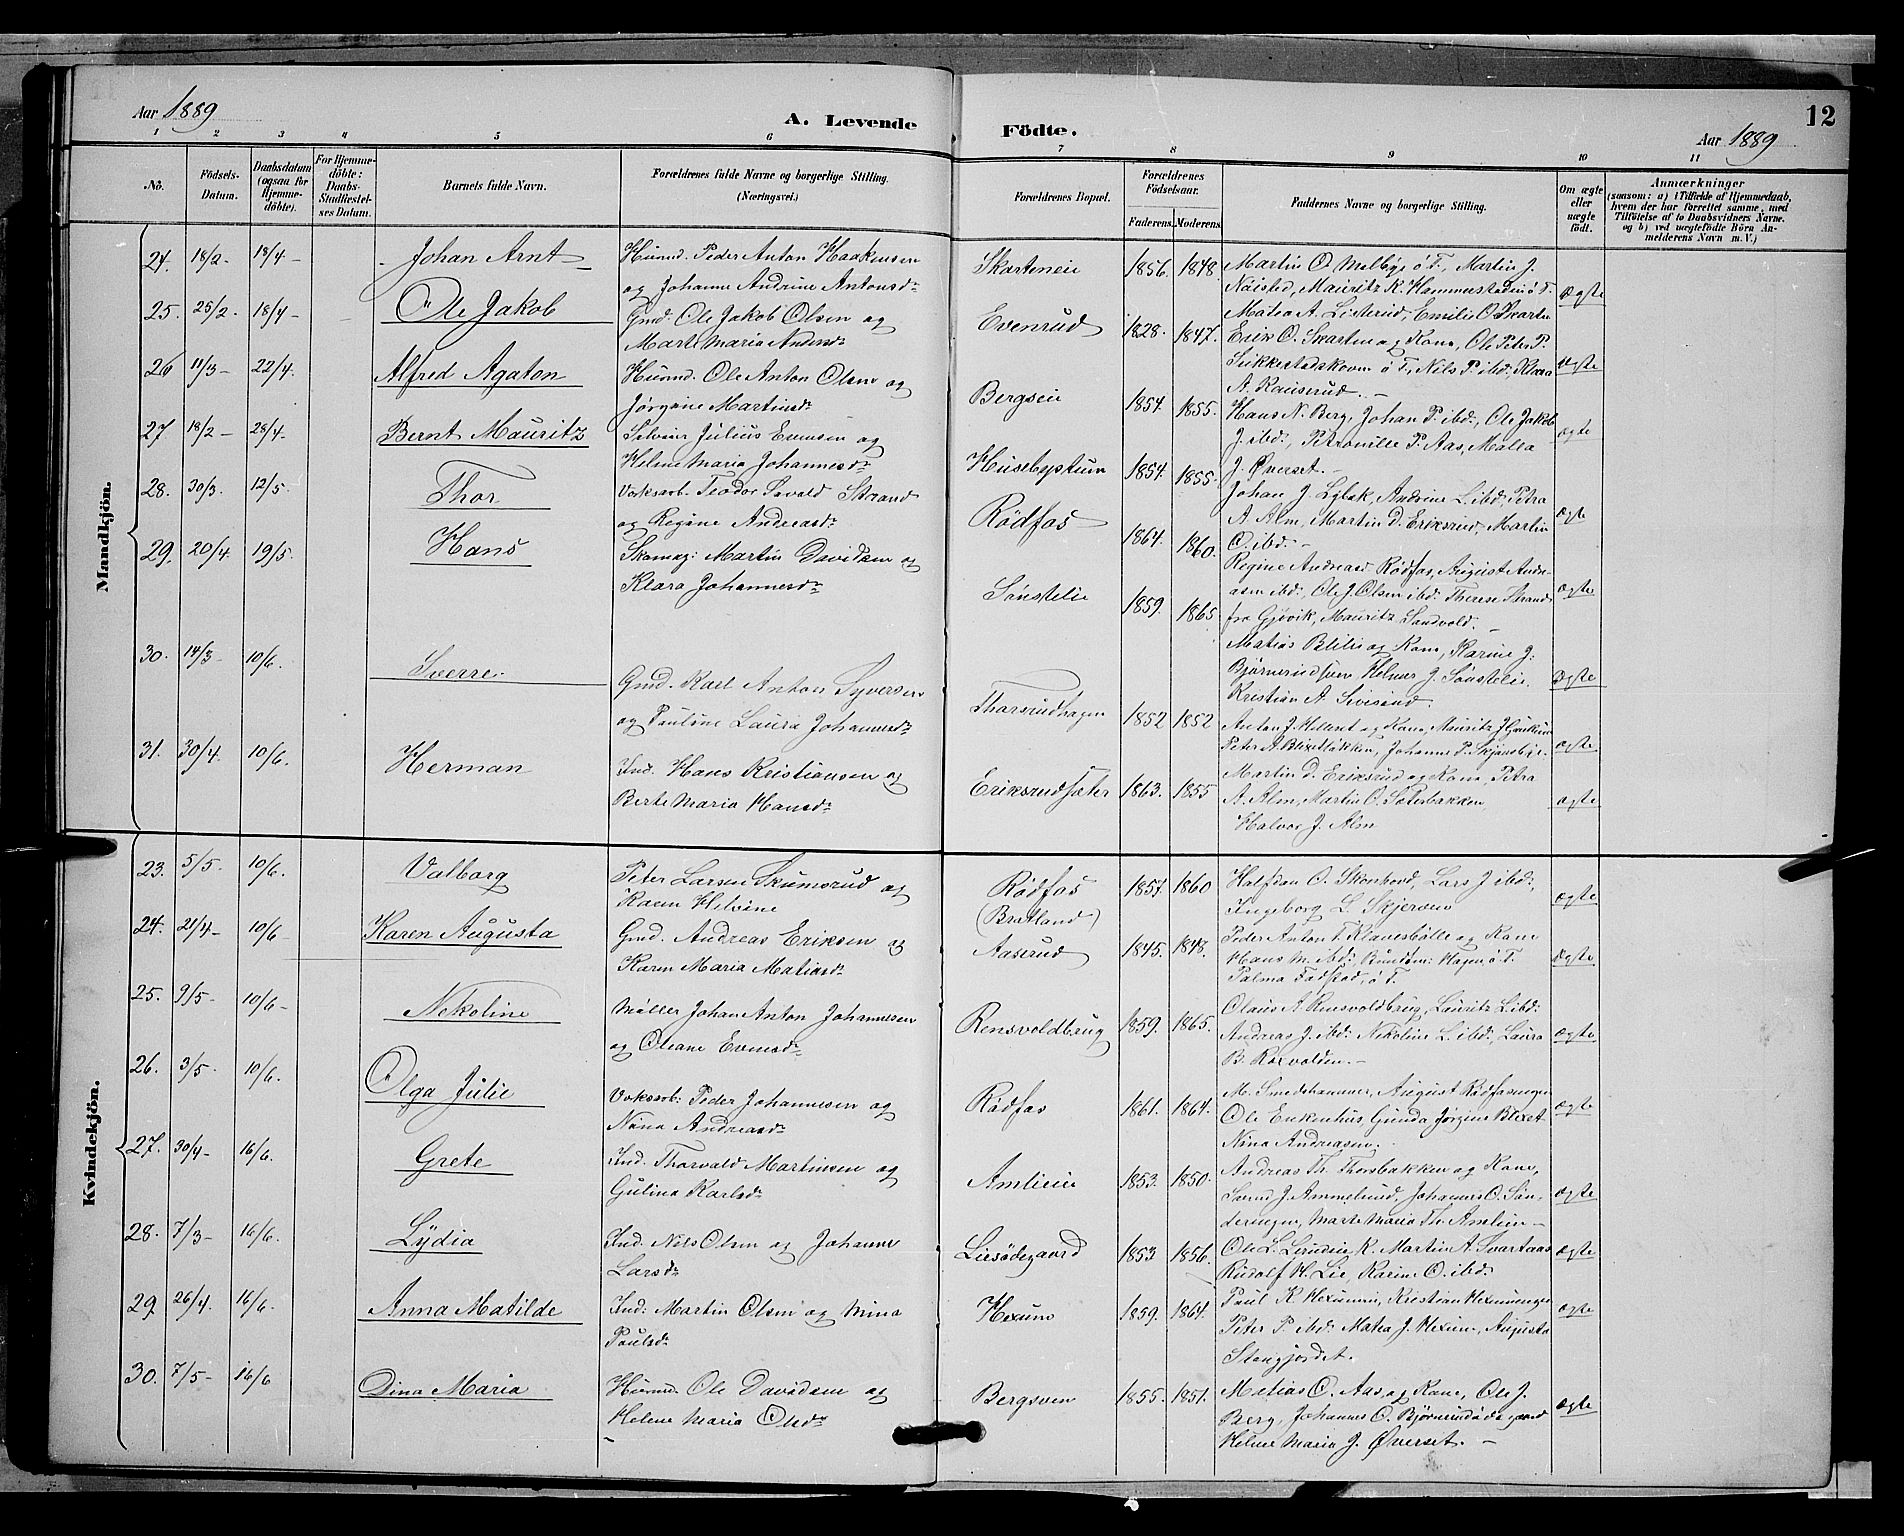 Aar 1889
A. Levende
Födte.
Aar 1889
12
1 2 3 4 5 6 7 8 9 10 11
No.
Födsels-Datum.
Daabsdatum (ogsaa for Hjemme-döbte).
For Hjemme-döbte: Daabs-Stadfæstel-ses Datum.
Barnets fulde Navn.
Forældrenes fulde Navne og borgerlige Stilling.
(Næringsvei.)
Forældrenes Bopæl.
Forældrenes Födselsaar.
Faderens Moderens
Faddernes Navne og borgerlige Stilling.
Om ægte eller uægte födt.
Anmærkninger
(saasom: a) i Tilfælde af Hjemmedaab,
hvem der har forrettet samme, med
Tilföielse af to Daabsvidners Navne.
og b) ved uægtefödte Börn An-
melderens Navn m. V.)
Mandkjön.
24. 18/2- 18/4- Johan Arnt
Huusmd. Peder Anton Haakensen
og Johanne Andrine Antonsdr
Skarteneie 1856. 1848
Martin O. Melbye ö T., Martin J.
Nøisted, Mauritz K. Hammerstadeie ö T.
Matea A. Listerud, Emilie O. Skarten
ægte
25. 25/2- 18/4- Ole Jakob
Gmd. Ole Jakob Olsen og
Marte Maria Andersdr
Evenrud 1828. 1847.
Erik O. Skarten og Kone, Ole Peter P.
Sikkestadskoven ö T, Nils P. ibd., Klara
A. Rauserud.-
ægte
26 11/3- 22/4. Alfred Agaton
Huusmd. Ole Anton Olsen og
Jørgine Martinsdr
Bergseie 1854. 1855.
Hans N. Berg, Johan P. ibd., Ole Jakob
J. ibd., Petronille P. Aas, Malla
J. Øverset.-
ægte
27 18/2- 28/4. Bernt Mauritz
Selveier Julius Evensen og
Helene Maria Johannesdr
Husebystuen 1854. 1855.
Johan J. Lybæk, Andrine L. ibd., Petra
A. Alm, Martin D. Eriksrud, Martin
O. ibd.-
ægte
28. 30/3. 12/5. Thor
Værksarb. Teodor Savald Strand
og Regine Andreasdr
Rødfos 1864. 1860.
Regine Andreasd. Rødfos, August Andre-
asen ibd., Ole J. Olsen ibd. Therese Strand
fra Gjøvik, Mauritz Sandvold.-
ægte
29. 20/4. 19/5. Hans
Skomag: Martin Davidsen og
Klara Johannesdr
Sønstelie 1859. 1865.
Matias Blilie og Kone, Karine J.
Bjørnerudsveen Helmer J. Sønstelie.
Kristian A. Sivesind
ægte
30. 14/3 10/6. Sverre.
Gmd. Karl Anton Syversen
og Pauline Laura Johannesdr
Thorsrudhagen 1852 1852
Anton J. Hilleret og Kone, Mauritz J.
Peter A. Blixetbakken, Johanne P. Skjønsbye.
ægte
31. 30/4. 10/6. Herman
Ind. Hans Kristiansen og
Berte Maria Hansdr
Eriksrudsæter 1863. 1855
Martin D. Eriksrud og Kone, Petra
A. Alm, Martin O. Sæterbakken,
Halvor J. Alm
ægte
Kvindekjön.
23. 5/5. 10/6. Valborg
Peter Larsen Skumsrud og
Karen Helvine
Rødfos (Bratland) 1857. 1860
Halfdan O. Skonhovd, Lars J. ibd.,
Ingeborg L. Skjerven
ægte
24. 21/4- 10/6- Karen Augusta
Gmd. Andreas Eriksen og
Karen Maria Matiasdr
Aaserud 1845. 1848.
Peder Anton T. Klavesbølle og Kone
Hans M. ibd., Hagen ö T.
Palma Fodstad, ö T.
ægte
25. 9/5- 10/6- Nekoline
Møller Johan Anton Johannesen
og Oleane Evensdr
Rensvoldbrug 1859. 1865.
Claus A. Rensvoldbrug, Lauritz L. ibd.
Andreas J. ibd., Nikoline L. ibd., Laura
B. Roxvolden.-
ægte
26. 3/5- 10/6. Olga Julie
Værksarb: Peder Johannesen og
Nina Andreasdr
Rødfos 1861. 1864.
M. Smedshammer, August Rødfosengen
Ole Enkenhus, Gunda Jørgine Blixet
Nina Andreasen.
ægte
27. 30/4- 16/6. Grete
Ind. Thorvald Martinsen og
Gulina Karlsdr
Amlieie 1853. 1850.
Andreas Th. Thorsbakken og Kone,
Svend J. Ammelund, Johannes O. Søn-
deringen, Marte Maria Th. Amlien-
ægte
28. 7/3- 16/6. Lydia
Ind. Nils Olsen og Johanne
Larsdr
Liesødegaard 1853 1856.
Ole L. K. Martin A. Svartaas
Rudolf H. Lie, Karine O. ibd.
ægte
29. 26/4. 16/6. Anna Matilde
Ind. Martin Olsen og Mina
Paulsdr
Hexum 1859. 1864.
Paul K. Hexumeie, Kristian Hexumengen
Peter P. ibd. Matea J. Hexum, Augusta
Stangjordet.
ægte
30. 7/5- 16/6 Dina Maria
Huusmd. Ole Davidsen og
Helene Maria Olsdr
Bergsveen 1855. 1851.
Matias O. Aas og Kone, Ole J.
Berg, Johannes O. Bjørnerudødegaard
Helene Maria J. Øverset.-
ægte